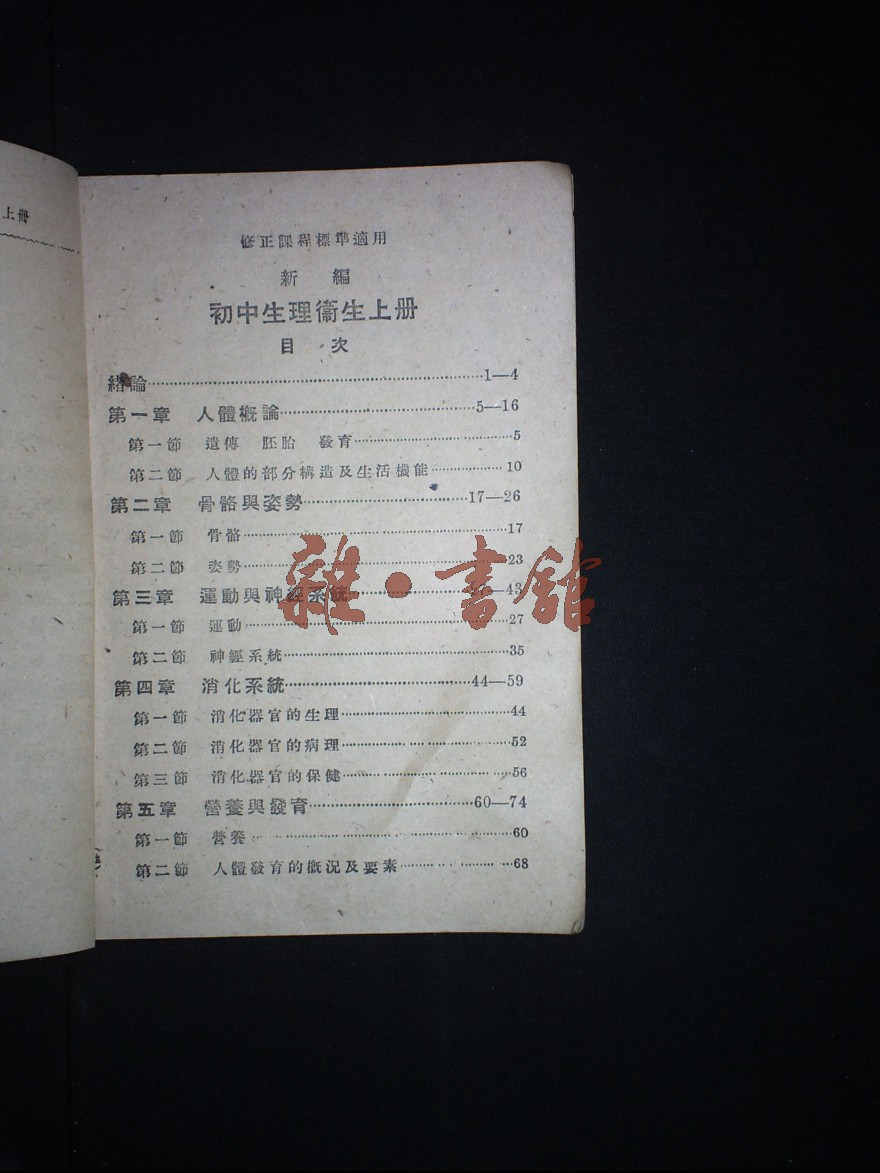 上冊
修正課程標準適用
新 編
初中生理衞生上册
目 次
緒論……1—4
第一章 人體概論……5—16
第一節 遺傳 胚胎 發育……5
第二節 人體的部分構造及生活機能……10
第二章 骨骼與姿勢……17—26
第一節 骨骼……17
第二節 姿勢……23
第三章 運動與神經系統……43
第一節 運動……27
第二節 神經系統……35
第四章 消化系統……44—59
第一節 消化器官的生理……44
第二節 消化器官的病理……52
第三節 消化器官的保健……56
第五章 營養與發育……60—74
第一節 營養……60
第二節 人體發育的概況及要素……68
雜·書館